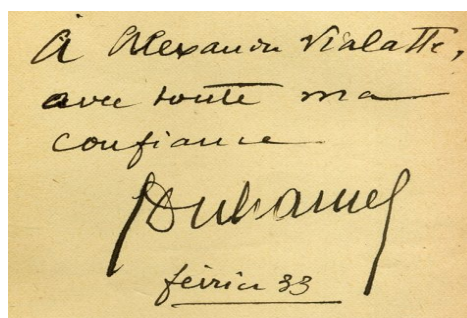 À Alexandre Vialatte,
avec toute ma
confiance
GDuhamel
février 33